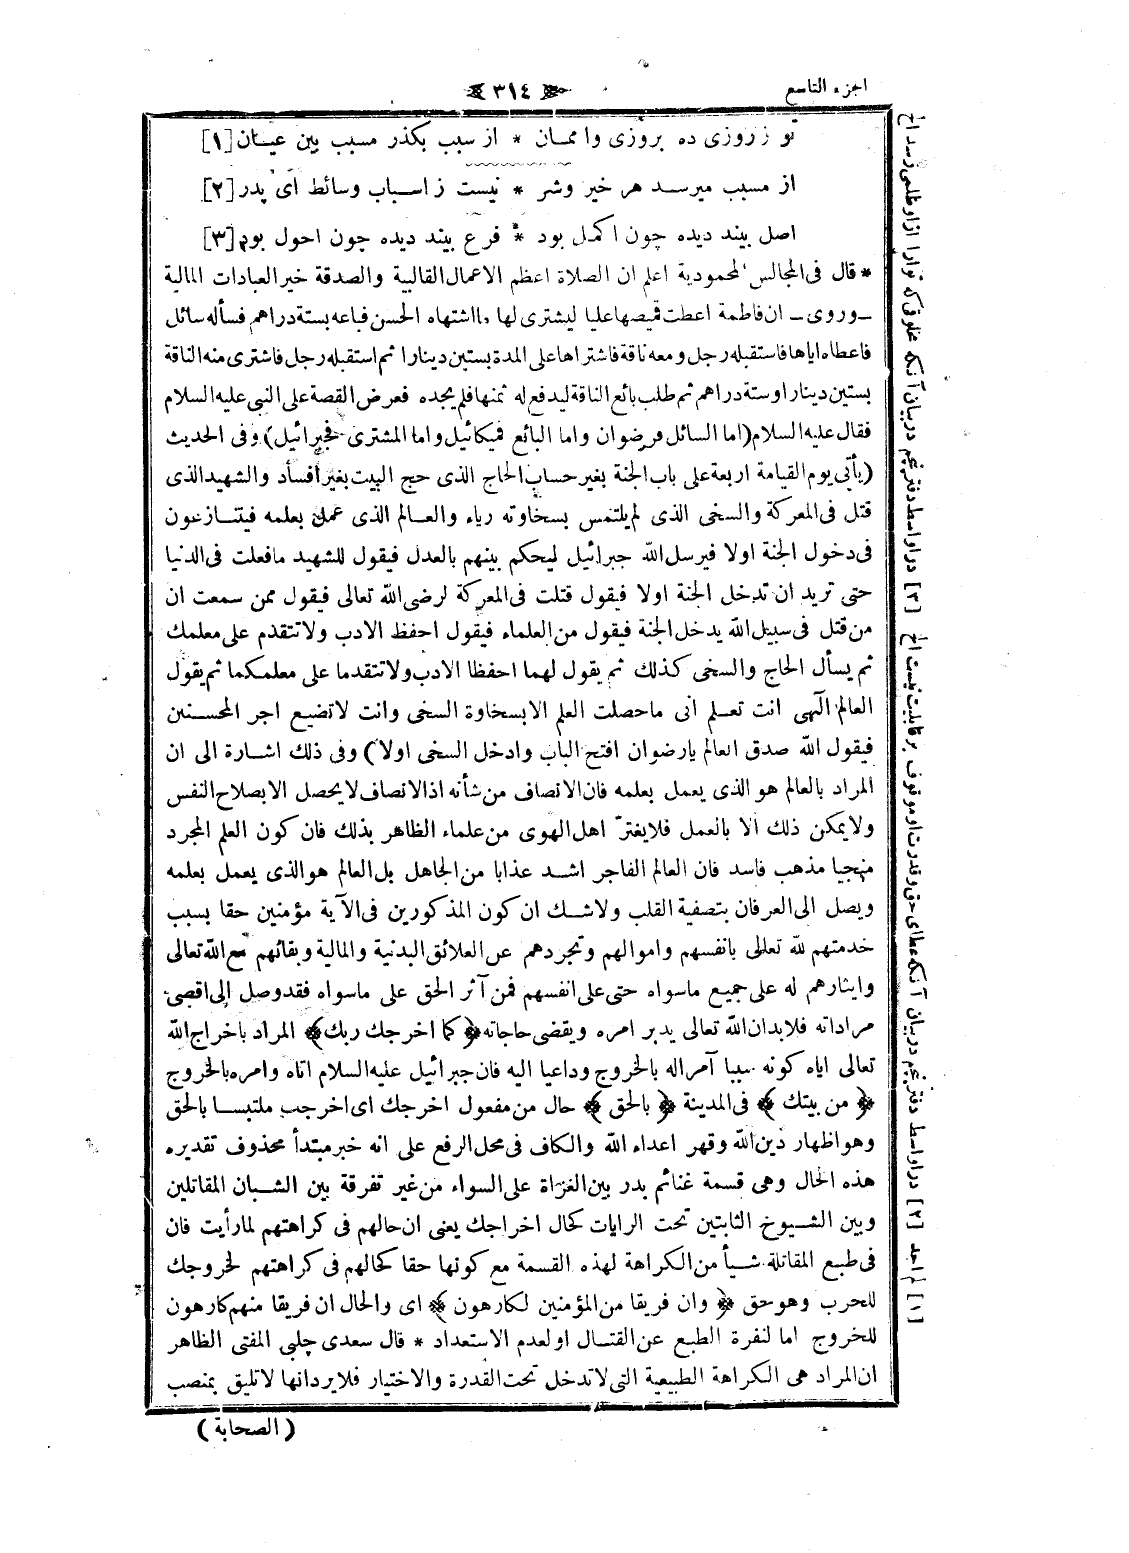 الجزء التاسع
﴿ ٣١٤ ﴾
تو ز روزی ده بروزی وا ممان * از سبب بگذر مسبب بین عیان [١]
از مسبب میرسد هر خیر وشر * نیست ز اسباب وسائط ای پدر [٢]
اصل بیند دیده چون اکمل بود * فرع بیند دیده چون احول بود [٣]
* قال فى المجالس المحمودية اعلم ان الصلاة اعظم الاعمال القالبية والصدقة خير العبادات المالية
ــ وروى ــ ان فاطمة اعطت قميصها عليا ليشترى لها ما اشتهاه الحسن فباعه بستة دراهم فسأله سائل
فاعطاه اياها فاستقبله رجل ومعه ناقة فاشتراها على المدة بستين دينارا ثم استقبله رجل فاشترى منه الناقة
بستين دينارا وستة دراهم ثم طلب بائع الناقة ليدفع له ثمنها فلم يجده فعرض القصة على النبى عليه السلام
فقال عليه السلام (اما السائل فرضوان واما البائع فميكائيل واما المشترى فجبرائيل) وفى الحديث
(يأتى يوم القيامة اربعة على باب الجنة بغير حساب الحاج الذى حج البيت بغير افساد والشهيد الذى
قتل فى المعركة والسخى الذى لم يلتمس بسخاوته رياء والعالم الذى عمل بعلمه فيتنازعون
فى دخول الجنة اولا فيرسل الله جبرائيل ليحكم بينهم بالعدل فيقول للشهيد مافعلت فى الدنيا
حتى تريد ان تدخل الجنة اولا فيقول قتلت فى المعركة لرضى الله تعالى فيقول ممن سمعت ان
من قتل فى سبيل الله يدخل الجنة فيقول من العلماء فيقول احفظ الادب ولا تتقدم على معلمك
ثم يسأل الحاج والسخى كذلك ثم يقول لهما احفظا الادب ولا تتقدما على معلمكما ثم يقول
العالم الٓهى انت تعلم انى ماحصلت العلم الا بسخاوة السخى وانت لاتضيع اجر المحسنين
فيقول الله صدق العالم يا رضوان افتح الباب وادخل السخى اولا) وفى ذلك اشارة الى ان
المراد بالعالم هو الذى يعمل بعلمه فان الانصاف من شأنه اذ الانصاف لا يحصل الا بصلاح النفس
ولا يمكن ذلك الا بالعمل فلا يغترّ اهل الهوى من علماء الظاهر بذلك فان كون العلم المجرد
منجيا مذهب فاسد فان العالم الفاجر اشد عذابا من الجاهل بل العالم هو الذى يعمل بعلمه
ويصل الى العرفان بتصفية القلب ولاشك ان كون المذكورين فى الآية مؤمنين حقا بسبب
خدمتهم لله تعالى بانفسهم واموالهم وتجردهم عن العلائق البدنية والمالية وبقائهم مع الله تعالى
وايثارهم له على جميع ماسواه حتى على انفسهم فمن آثر الحق على ماسواه فقد وصل الى اقصى
مراداته فلابد ان الله تعالى يدبر امره ويقضى حاجاته ﴿ كما اخرجك ربك ﴾ المراد باخراج الله
تعالى اياه كونه سببا آمرا له بالخروج وداعيا اليه فان جبرائيل عليه السلام اتاه وامره بالخروج
﴿ من بيتك ﴾ فى المدينة ﴿ بالحق ﴾ حال من مفعول اخرجك اى اخرجك ملتبسا بالحق
وهو اظهار دين الله وقهر اعداء الله والكاف فى محل الرفع على انه خبر مبتدأ محذوف تقديره
هذه الحال وهى قسمة غنائم بدر بين الغزاة على السواء من غير تفرقة بين الشبان المقاتلين
وبين الشيوخ الثابتين تحت الرايات كحال اخراجك يعنى ان حالهم فى كراهتهم لما رأيت فان
فى طبع المقاتلة شيأ من الكراهة لهذه القسمة مع كونها حقا كحالهم فى كراهتهم لخروجك
للحرب وهو حق ﴿ وان فريقا من المؤمنين لكارهون ﴾ اى والحال ان فريقا منهم كارهون
للخروج اما لنفرة الطبع عن القتال او لعدم الاستعداد * قال سعدى چلبى المفتى الظاهر
ان المراد هى الكراهة الطبيعية التى لاتدخل تحت القدرة والاختيار فلا يرد انها لاتليق بمنصب
( الصحابة )
[١] لم اجد [٢] در اواسط دفتر پنجم در بیان آنکه عطای حق وقدرت او موقوف بر قابلیت نیست الخ [٣] در اواسط دفتر پنجم در بیان آنکه مخلوقی که ترا از او ظلمی رسد الخ